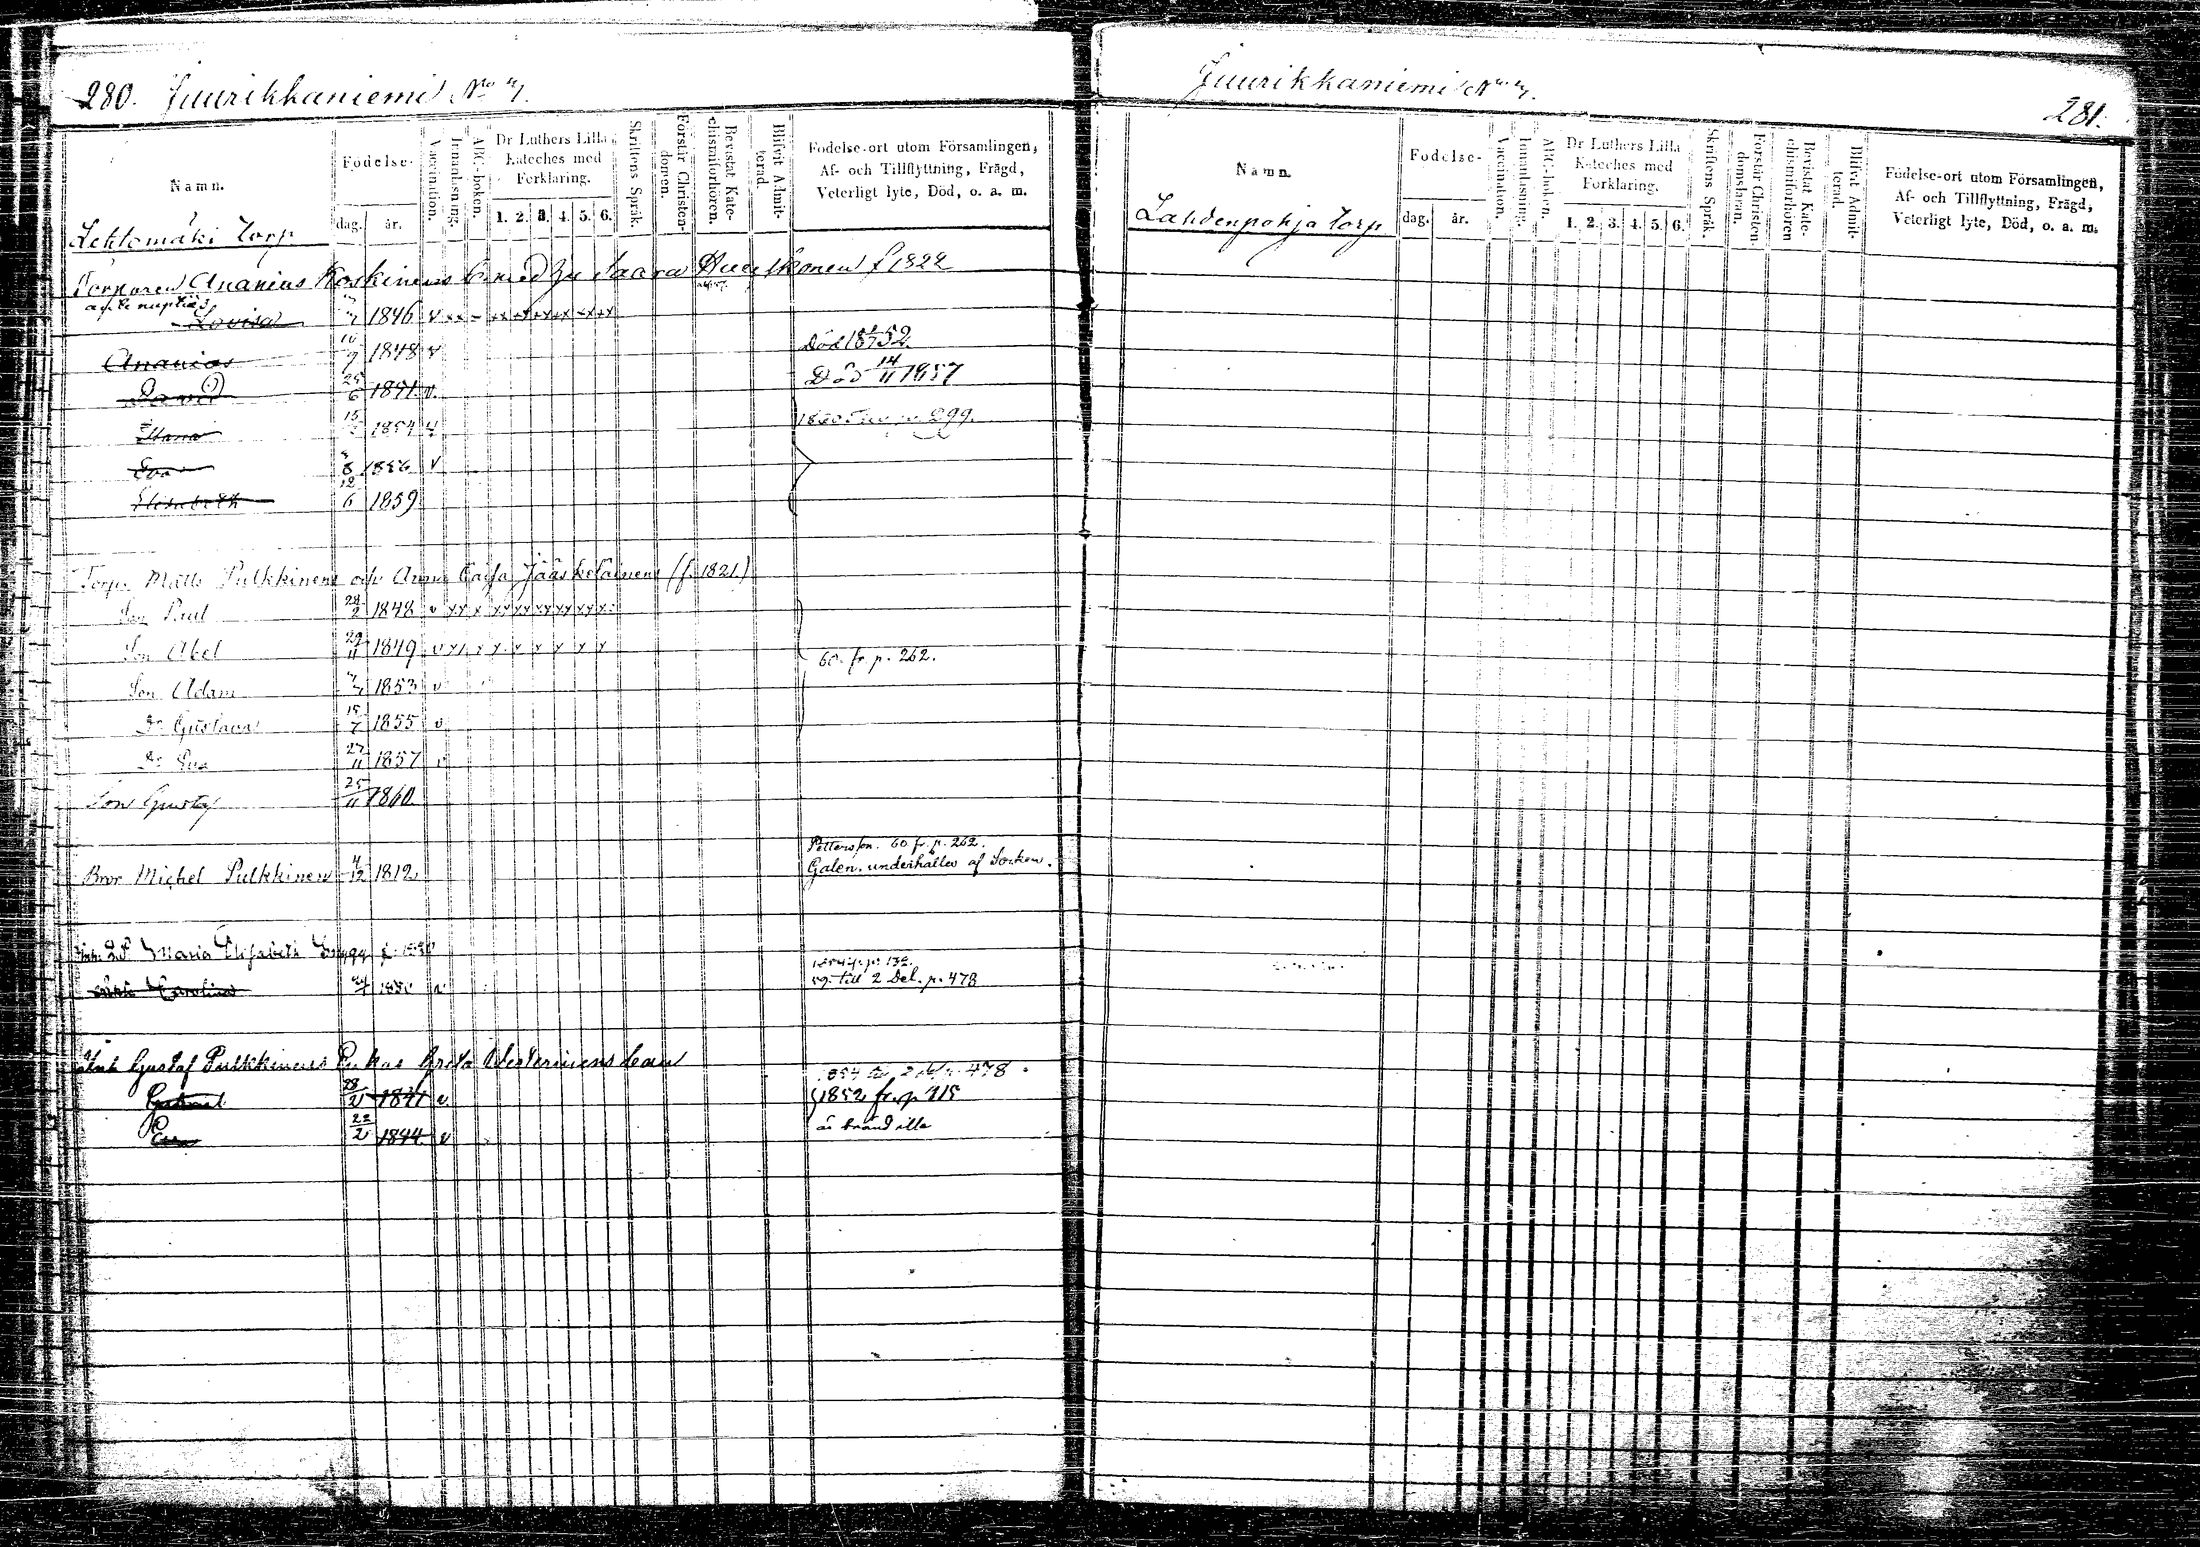 280. Juurikkaniemi No 7.
Namn.
Födelse-
dag. år.
Vaccination.
Innanläsning.
ABC-boken.
Dr Luthers Lilla
Kateches med
Förklaring.
1. 2. 3. 4. 5. 6.
Skriftens Språk.
Förstår Christen-
domen.
Bevistat Kate-
chismiförhören.
Blifvit Admit-
terad.
Födelse-ort utom Församlingen,
Af- och Tillflyttning, Frägd,
Veterligt lyte, Död, o. a. m.
Lehtomäki Torp
Torparen Ananias Koskinens b. med Saara f 1822
ante nuptias
Lovisa 1846 v
Ananias 10/7 1848 v Död 1852
David 25/6 1851 v. Död 14/11 1857
15 1854 v p. 299.
Eva 8 1856 v
Elisabeth 12/6 1859
Torp. Matts Pulkkinens och Anna Caisa Jääskeläinens (f. 1821.)
Son Paul 28/2 1848 v xx x xx xx xx xx xx xx
Son Abel 29/11 1849 v x x x x x x x x 60. fr p. 262.
Son Adam 1853 v
Dr Gustava 15/7 1855 v
Dr Eva 27/11 1857 v
Son Gustaf 25/11 1860
Pettersson. 60 fr. p. 262.
Bror Michel Pulkkinen 4/12 1812 Galen. underhålles af Socken.
Maria Elisabeth
Carolina 24 1850 v 59. till 2 Del. p. 478
Gustaf Pulkkinens Enkas Greta Westerinens barn
1854 2 478
28/2 1841 v 1852 fr. p 415
Eva 22/2 1844 v
Juurikkaniemi No 7.
281.
Namn.
Födelse-
dag. år.
Vaccination.
Innanläsning.
ABC-boken.
Dr Luthers Lilla
Kateches med
Förklaring.
1. 2. 3. 4. 5. 6.
Skriftens Språk.
Förstår Christen-
domsläran.
Bevistat Kate-
chismiförhören
Blifvit Admit-
terad.
Födelse-ort utom Församlingen,
Af- och Tillflyttning, Frägd,
Veterligt lyte, Död, o. a. m.
Lahdenpohja Torp